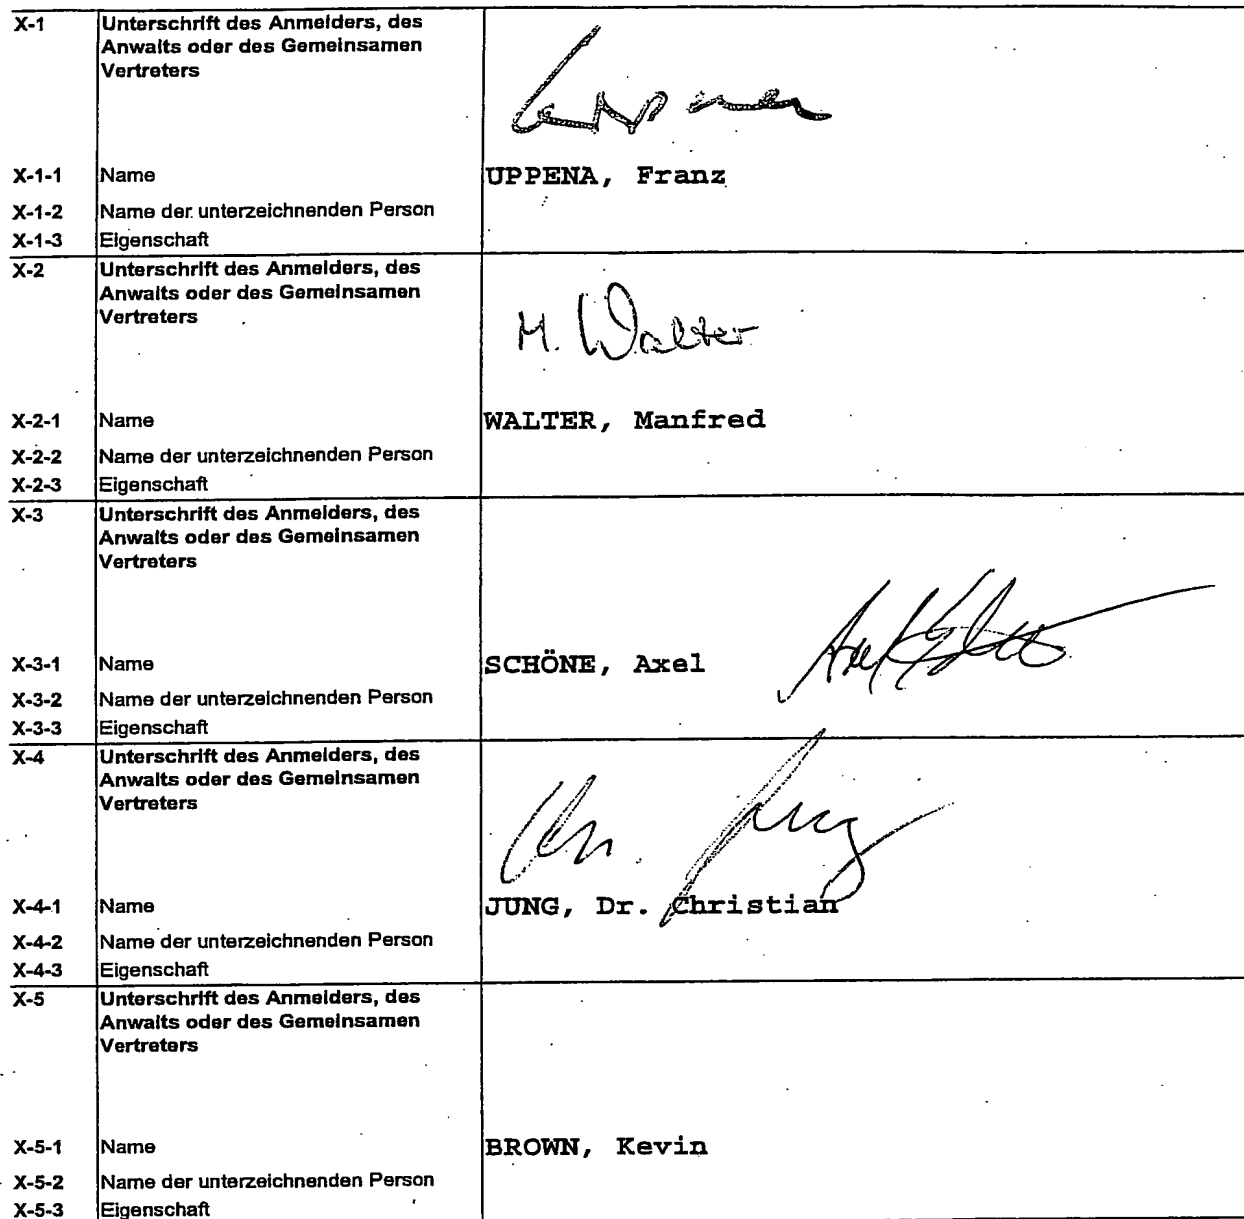 X-1 Unterschrift des Anmelders, des
Anwalts oder des Gemeinsamen
Vertreters
X-1-1 Name UPPENA, Franz
X-1-2 Name der unterzeichnenden Person
X-1-3 Eigenschaft
X-2 Unterschrift des Anmelders, des
Anwalts oder des Gemeinsamen
Vertreters
M. Walter
X-2-1 Name WALTER, Manfred
X-2-2 Name der unterzeichnenden Person
X-2-3 Eigenschaft
X-3 Unterschrift des Anmelders, des
Anwalts oder des Gemeinsamen
Vertreters
X-3-1 Name SCHÖNE, Axel
X-3-2 Name der unterzeichnenden Person
X-3-3 Eigenschaft
X-4 Unterschrift des Anmelders, des
Anwalts oder des Gemeinsamen
Vertreters
X-4-1 Name JUNG, Dr. Christian
X-4-2 Name der unterzeichnenden Person
X-4-3 Eigenschaft
X-5 Unterschrift des Anmelders, des
Anwalts oder des Gemeinsamen
Vertreters
X-5-1 Name BROWN, Kevin
X-5-2 Name der unterzeichnenden Person
X-5-3 Eigenschaft